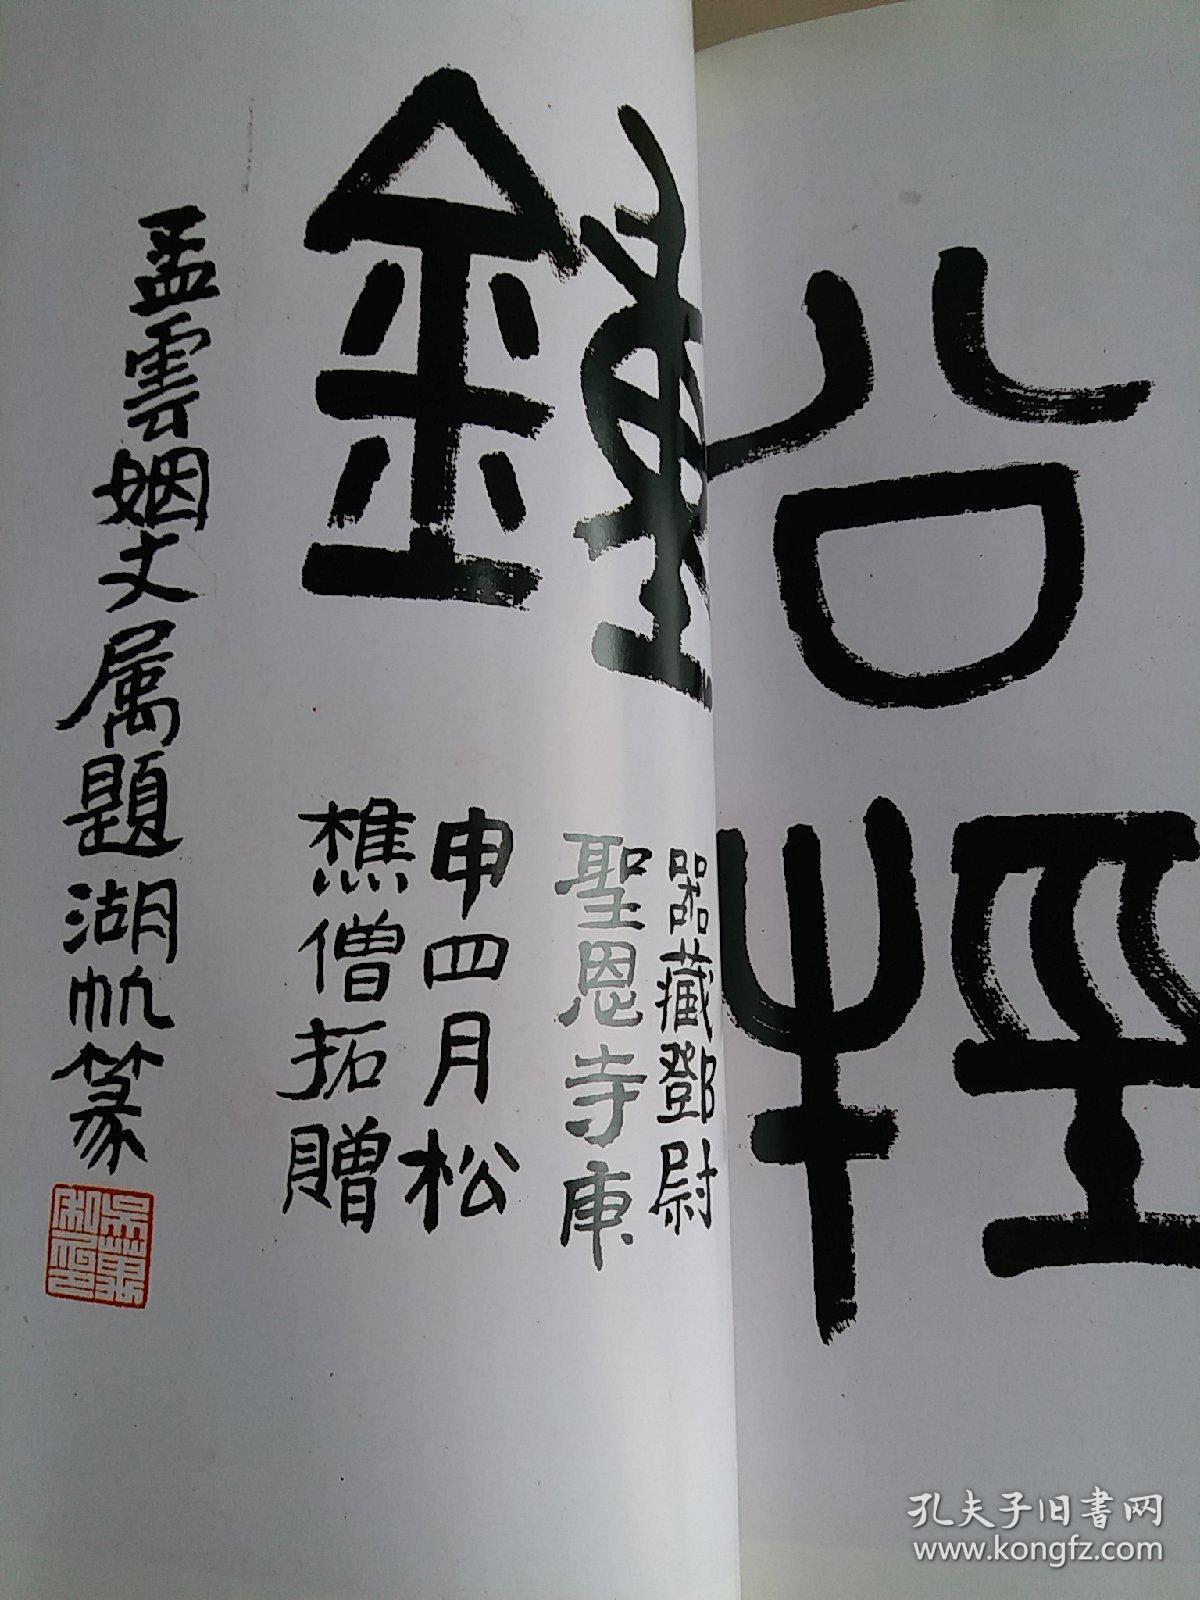 公牼
鍾
器藏鄧尉
聖恩寺庚
申四月松
樵僧拓贈
孟雲姻丈属題湖帆篆
吳萬
私印
孔夫子旧书网
www.kongfz.com